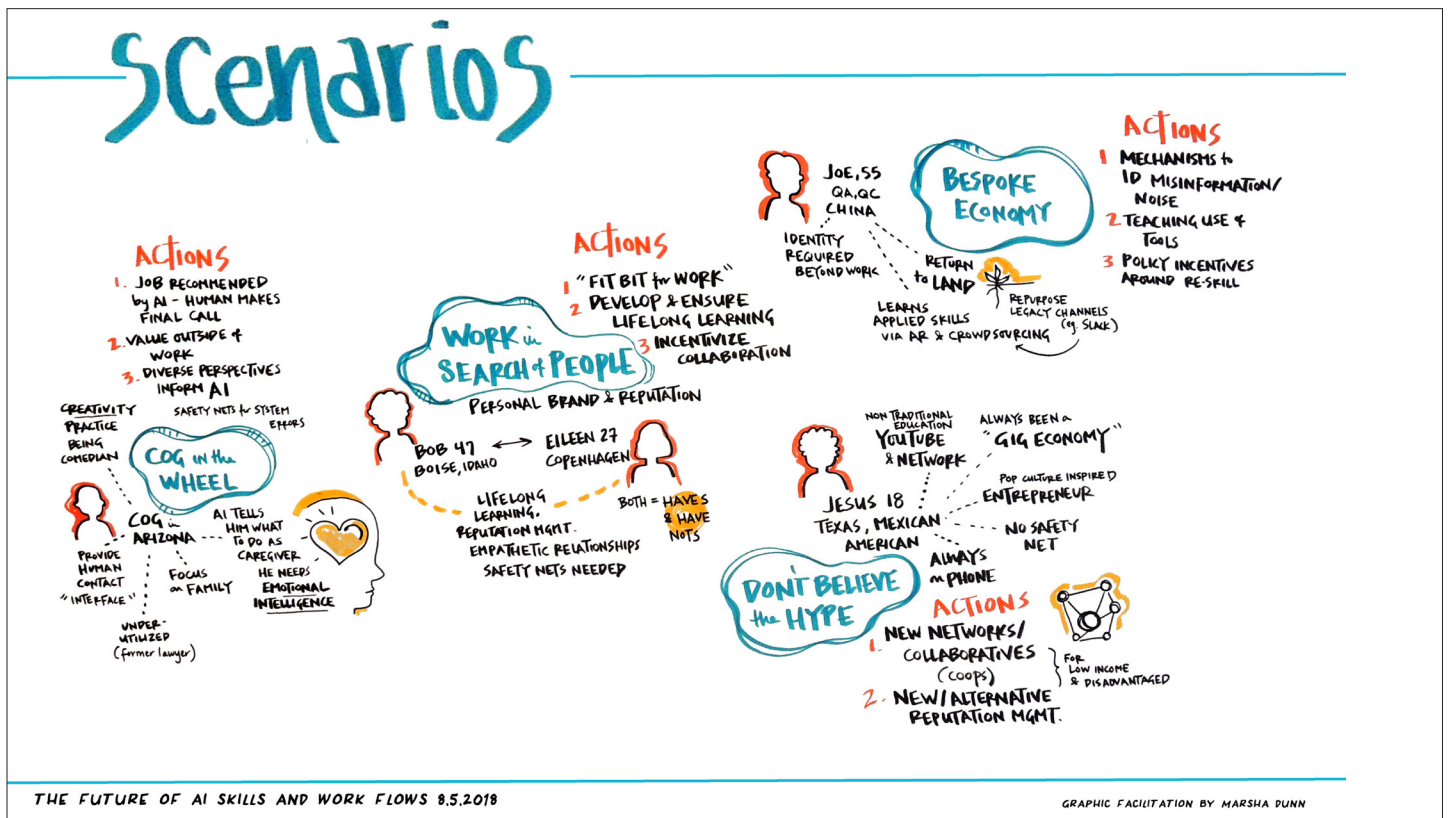 Scenarios
ACTIONS
1. JOB RECOMMENDED
by AI - HUMAN MAKES
FINAL CALL
2. VALUE OUTSIDE of
WORK
3. DIVERSE PERSPECTIVES
INFORM AI
SAFETY NETS for SYSTEM
ERRORS
CREATIVITY
PRACTICE
BEING
COMEDIAN
COG IN the
WHEEL
COG in
ARIZONA
PROVIDE
HUMAN
CONTACT
"INTERFACE"
UNDER-
UTILIZED
(former lawyer)
FOCUS
on FAMILY
AI TELLS
HIM WHAT
TO DO AS
CAREGIVER
HE NEEDS
EMOTIONAL
INTELLIGENCE
ACTIONS
1 "FIT BIT for WORK"
2 DEVELOP & ENSURE
LIFELONG LEARNING
3 INCENTIVIZE
COLLABORATION
WORK in
SEARCH of PEOPLE
PERSONAL BRAND & REPUTATION
BOB 47
BOISE, IDAHO
EILEEN 27
COPENHAGEN
LIFELONG
LEARNING.
REPUTATION MGMT.
EMPATHETIC RELATIONSHIPS
SAFETY NETS NEEDED
BOTH = HAVES
& HAVE
NOTS
JOE, 55
QA, QC
CHINA
BESPOKE
ECONOMY
IDENTITY
REQUIRED
BEYOND WORK
RETURN
to LAND
LEARNS
APPLIED SKILLS
VIA AR & CROWDSOURCING
REPURPOSE
LEGACY CHANNELS
(eg. SLACK)
ACTIONS
1 MECHANISMS to
ID MISINFORMATION/
NOISE
2 TEACHING USE of
TOOLS
3 POLICY INCENTIVES
AROUND RE-SKILL
NON TRADITIONAL
EDUCATION
YOUTUBE
& NETWORK
ALWAYS BEEN a
"GIG ECONOMY"
POP CULTURE INSPIRED
ENTREPRENEUR
NO SAFETY
NET
ALWAYS
on PHONE
JESUS 18
TEXAS, MEXICAN
AMERICAN
DON'T BELIEVE
the HYPE
ACTIONS
1. NEW NETWORKS/
COLLABORATIVES
(COOPS)
FOR
LOW INCOME
& DISADVANTAGED
2. NEW/ALTERNATIVE
REPUTATION MGMT.
THE FUTURE OF AI SKILLS AND WORK FLOWS 8.5.2018
GRAPHIC FACILITATION BY MARSHA DUNN